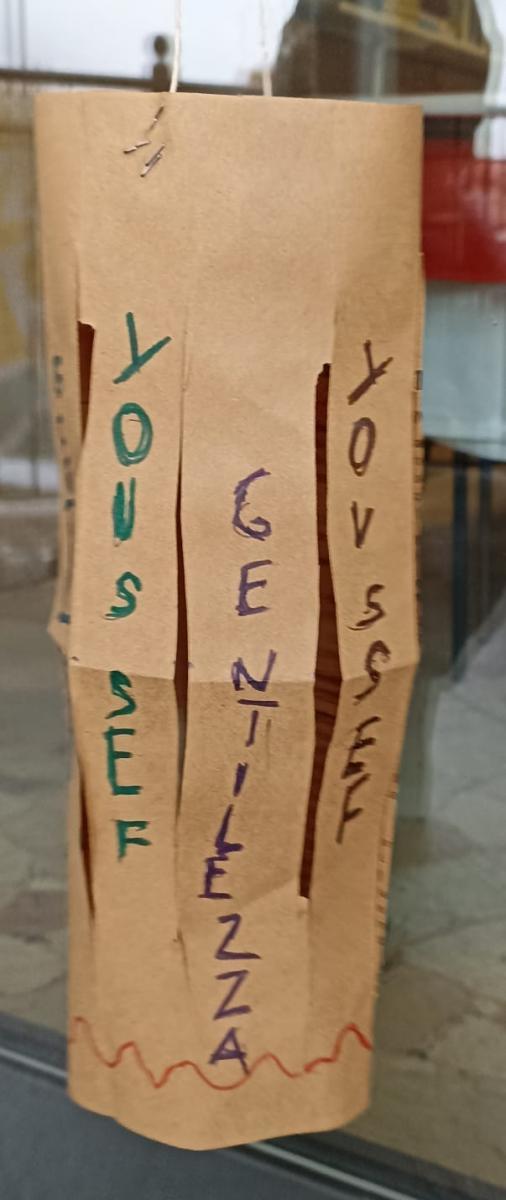 YOUSSEF
GENTILEZZA
YOVSSEF